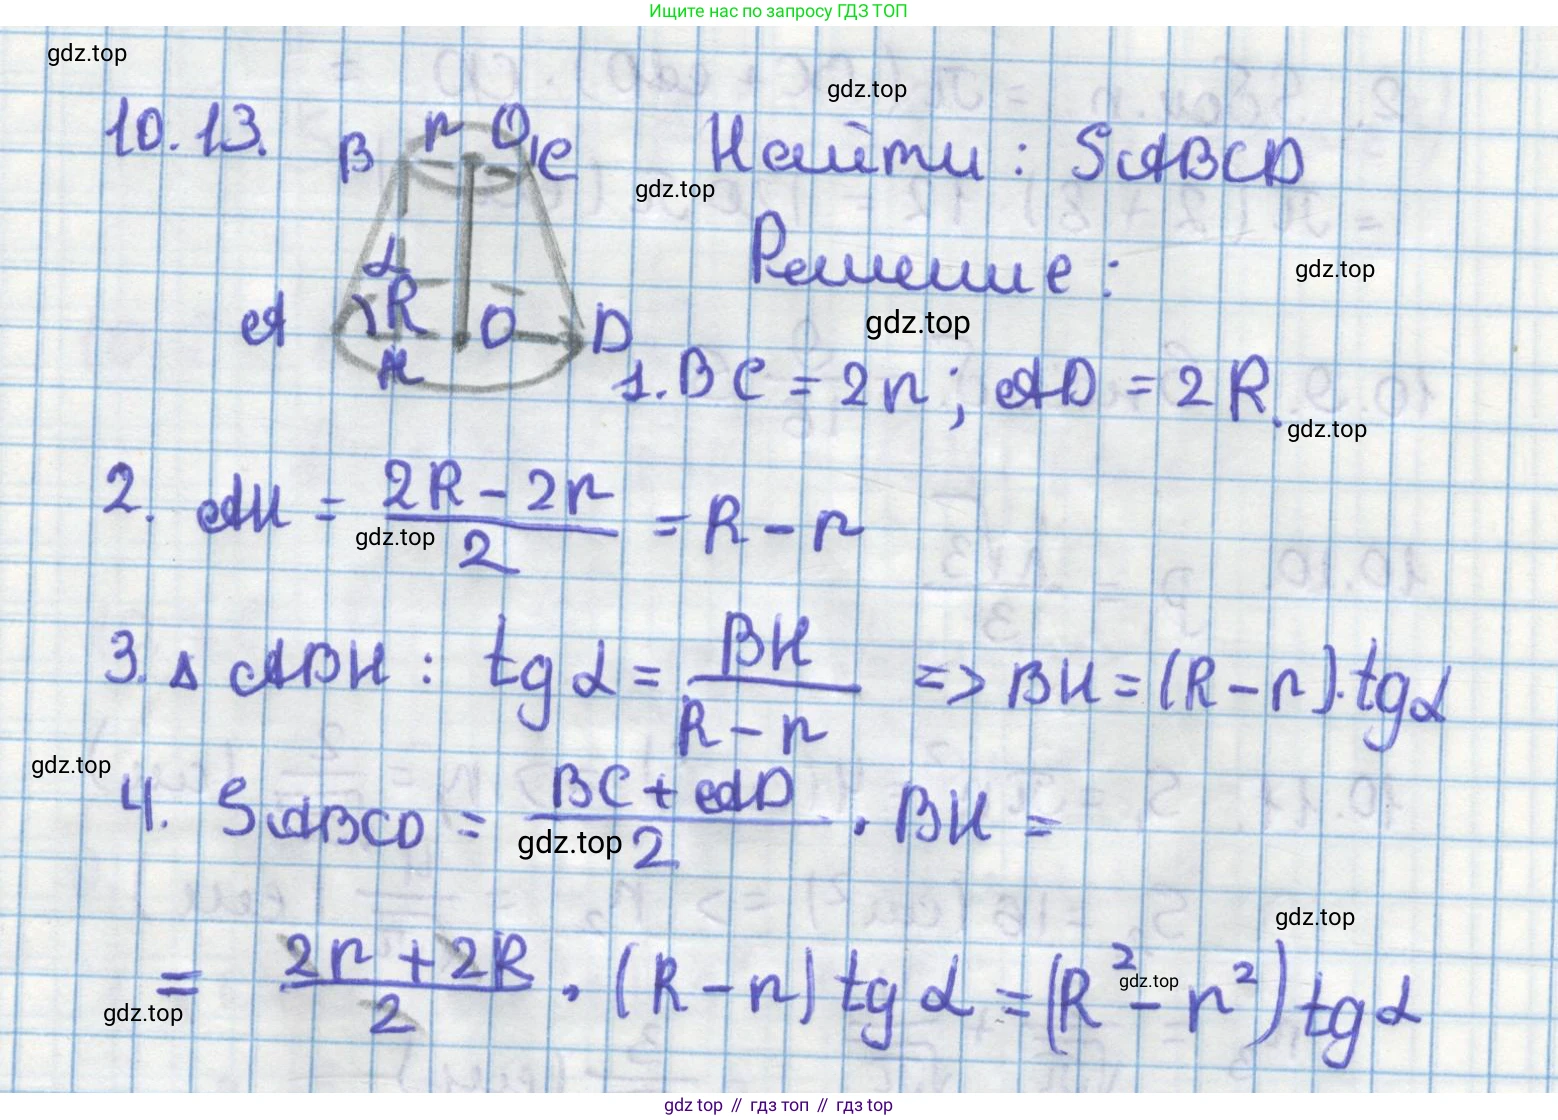 Ищите нас по запросу ГДЗ ТОП
gdz.top
gdz.top
10.13. B r O₁ C Найти: SABCD
gdz.top
α Решение:
gdz.top
A R O D
gdz.top
H
1. BC = 2r; AD = 2R.
gdz.top
2. AH = (2R - 2r)/2 = R - r
gdz.top
3. Δ ABH: tg α = BH/(R - r) => BH = (R - r)·tg α
gdz.top
4. SABCD = (BC + AD)/2 · BH =
gdz.top
gdz.top
= (2r + 2R)/2 · (R - r) tg α = (R² - r²) tg α
gdz.top
gdz.top
gdz top // гдз топ // гдз top